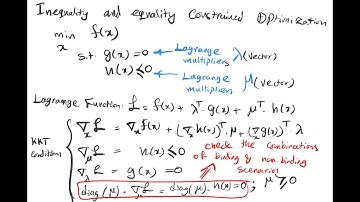 Inequality and equality Constrained Optimization
min f(x)
x
s.t. g(x) = 0 ← Lagrange multipliers λ (vector)
h(x) ≤ 0 ← Lagrange multipliers μ (vector)
Lagrange Function: ℒ = f(x) + λᵀ. g(x) + μᵀ. h(x)
KKT Conditions
∇ₓℒ = ∇ₓf(x) + (∇ₓh(x))ᵀ. μ + (∇ₓg(x))ᵀ λ
∇μℒ = h(x) ≤ 0
∇λℒ = g(x) = 0
check the combinations of binding & non-binding scenarios
diag(μ) . ∇μℒ = diag(μ) . h(x) = 0 ; μ ≥ 0